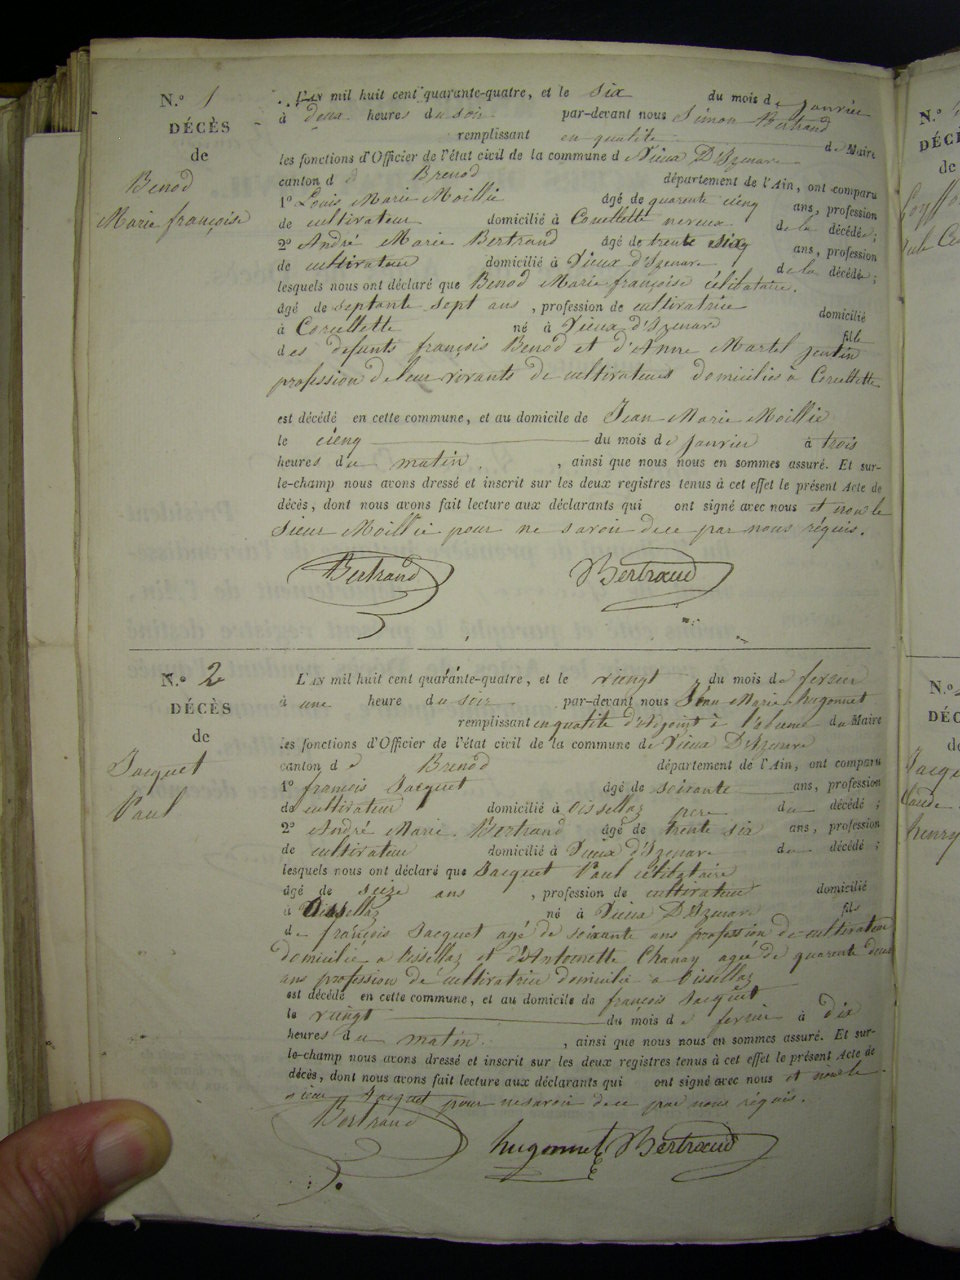 N.° 1
DÉCÈS
de
Benod
Marie françoise
L'AN mil huit cent quarante-quatre, et le six du mois de janvier
à deux heures du soir par-devant nous Simon Bertrand
remplissant en qualité de Maire
les fonctions d'Officier de l'état civil de la commune d Vieux D'Izenave
canton d Brenod département de l'Ain, ont comparu
1° Louis Marie Moillie âgé de quarente cienq ans, profession
de cultivateur domicilié à Corcellette neveux de la décédée;
2° André Marie Bertrand âgé de trente six ans, profession
de cultivateur domicilié à Vieux d'Izenave de la décédée;
lesquels nous ont déclaré que Benod Marie françoise célibataire.
âgé de septante sept ans, profession de cultivatrice domicilié
à Corcellette né à Vieux d'Izenave fille
des defunts françois Benod et d'Anne Martel
profession de leur vivants de cultivateurs domiciliés à Corcellette
est décédé en cette commune, et au domicile de Jean Marie Moillie
le cienq du mois de janvier à trois
heures du matin, ainsi que nous nous en sommes assuré. Et sur-
le-champ nous avons dressé et inscrit sur les deux registres tenus à cet effet le présent Acte de
décès, dont nous avons fait lecture aux déclarants qui ont signé avec nous et non le
Sieur Moillie pour ne savoir de ce par nous réquis.
Bertrand Bertrand
N.° 2
DÉCÈS
de
Jacquet
Paul
L'AN mil huit cent quarante-quatre, et le vuingt du mois de fervier
à une heure du soir par-devant nous Jean Marie hugonnet
remplissant en qualité d'Adjoint à l'absence du Maire
les fonctions d'Officier de l'état civil de la commune de Vieux D'Izenave
canton d e Brenod département de l'Ain, ont comparu
1° françois Jacquet âgé de soixante ans, profession
de cultivateur domicilié à Oissellaz pere du décédé;
2° André Marie Bertrand âgé de trente six ans, profession
de cultivateur domicilié à Vieux d'Izenave du décédé;
lesquels nous ont déclaré que Jacquet Paul célibataire
âgé de seize ans, profession de cultivateur domicilié
à Oissellaz né à Vieux D'Izenave fils
de françois Jacquet agé de soixante ans profession de cultivateur
domicilié a Oissellaz et d'Antoinette Chanay agée de quarente deux
ans profession de cultivatrice domicilié a Oissellaz
est décédé en cette commune, et au domicile de françois Jacquet
le vuingt du mois de fervier à dix
heures du matin, ainsi que nous nous en sommes assuré. Et sur-
le-champ nous avons dressé et inscrit sur les deux registres tenus à cet effet le présent Acte de
décès, dont nous avons fait lecture aux déclarants qui ont signé avec nous et non le
sieur Jacquet pour ne savoir de ce par nous réquis.
Bertrand hugonnet Bertrand